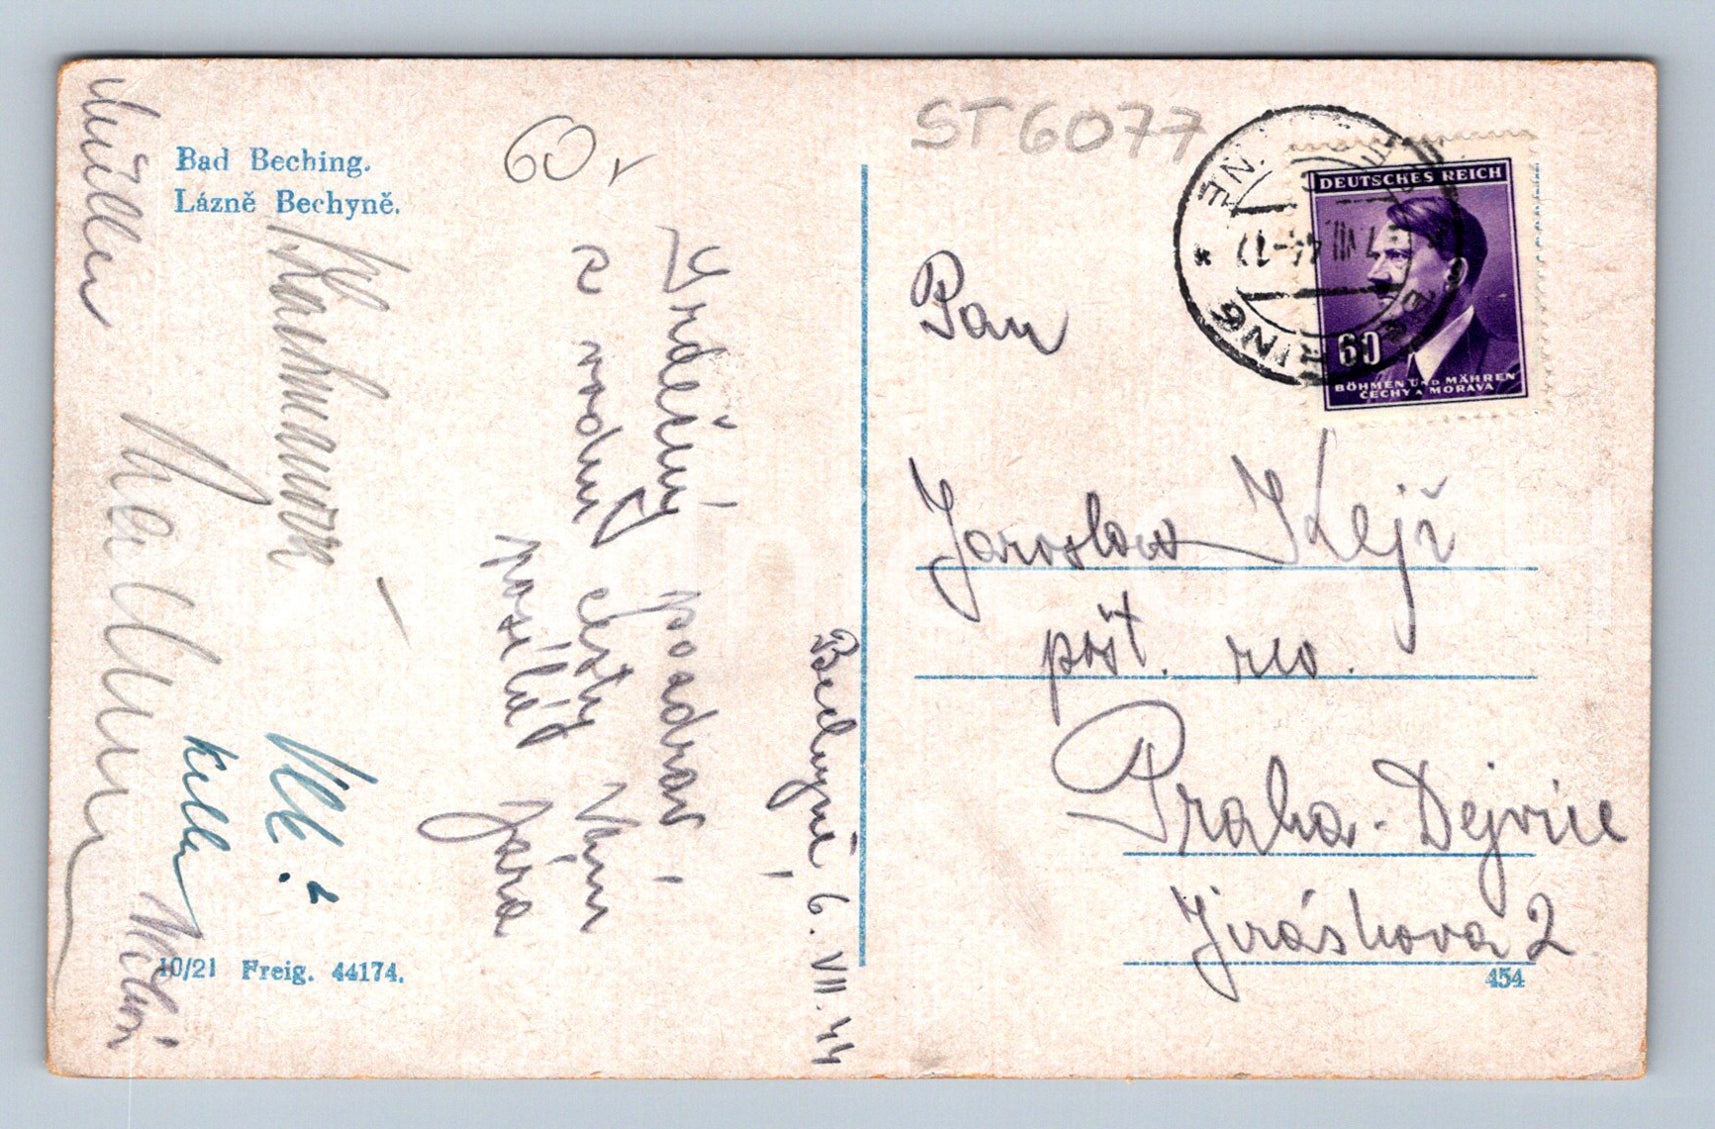 Bad Beching.
Lázně Bechyně.
60,-
ST 6077
DEUTSCHES REICH
60
BÖHMEN UND MÄHREN
ČECHY A MORAVA
Bechyně 6. VII. 44
Srdečný pozdrav
z vodní cesty Vám
posílá Jára
Müller
Vlk
Pan
Jaroslav Kejř
pošt. rev.
Praha-Dejvice
Jiráskova 2
10/21 Freig. 44174.
454